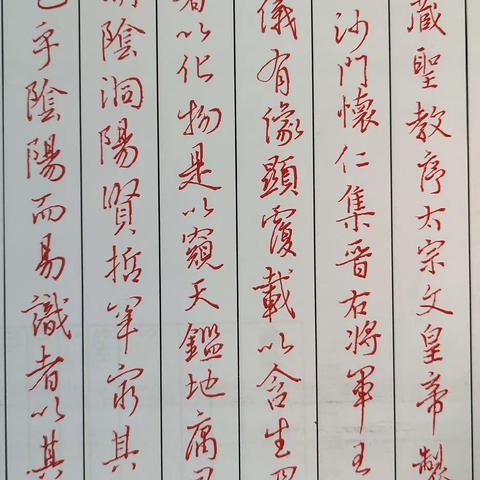 藏聖教序太宗文皇帝製
沙門懷仁集晉右將軍王
儀有像顯覆載以含生四
者以化物是以窺天鑑地庸
陰洞陽賢哲罕窮其
乎陰陽而易識者以其